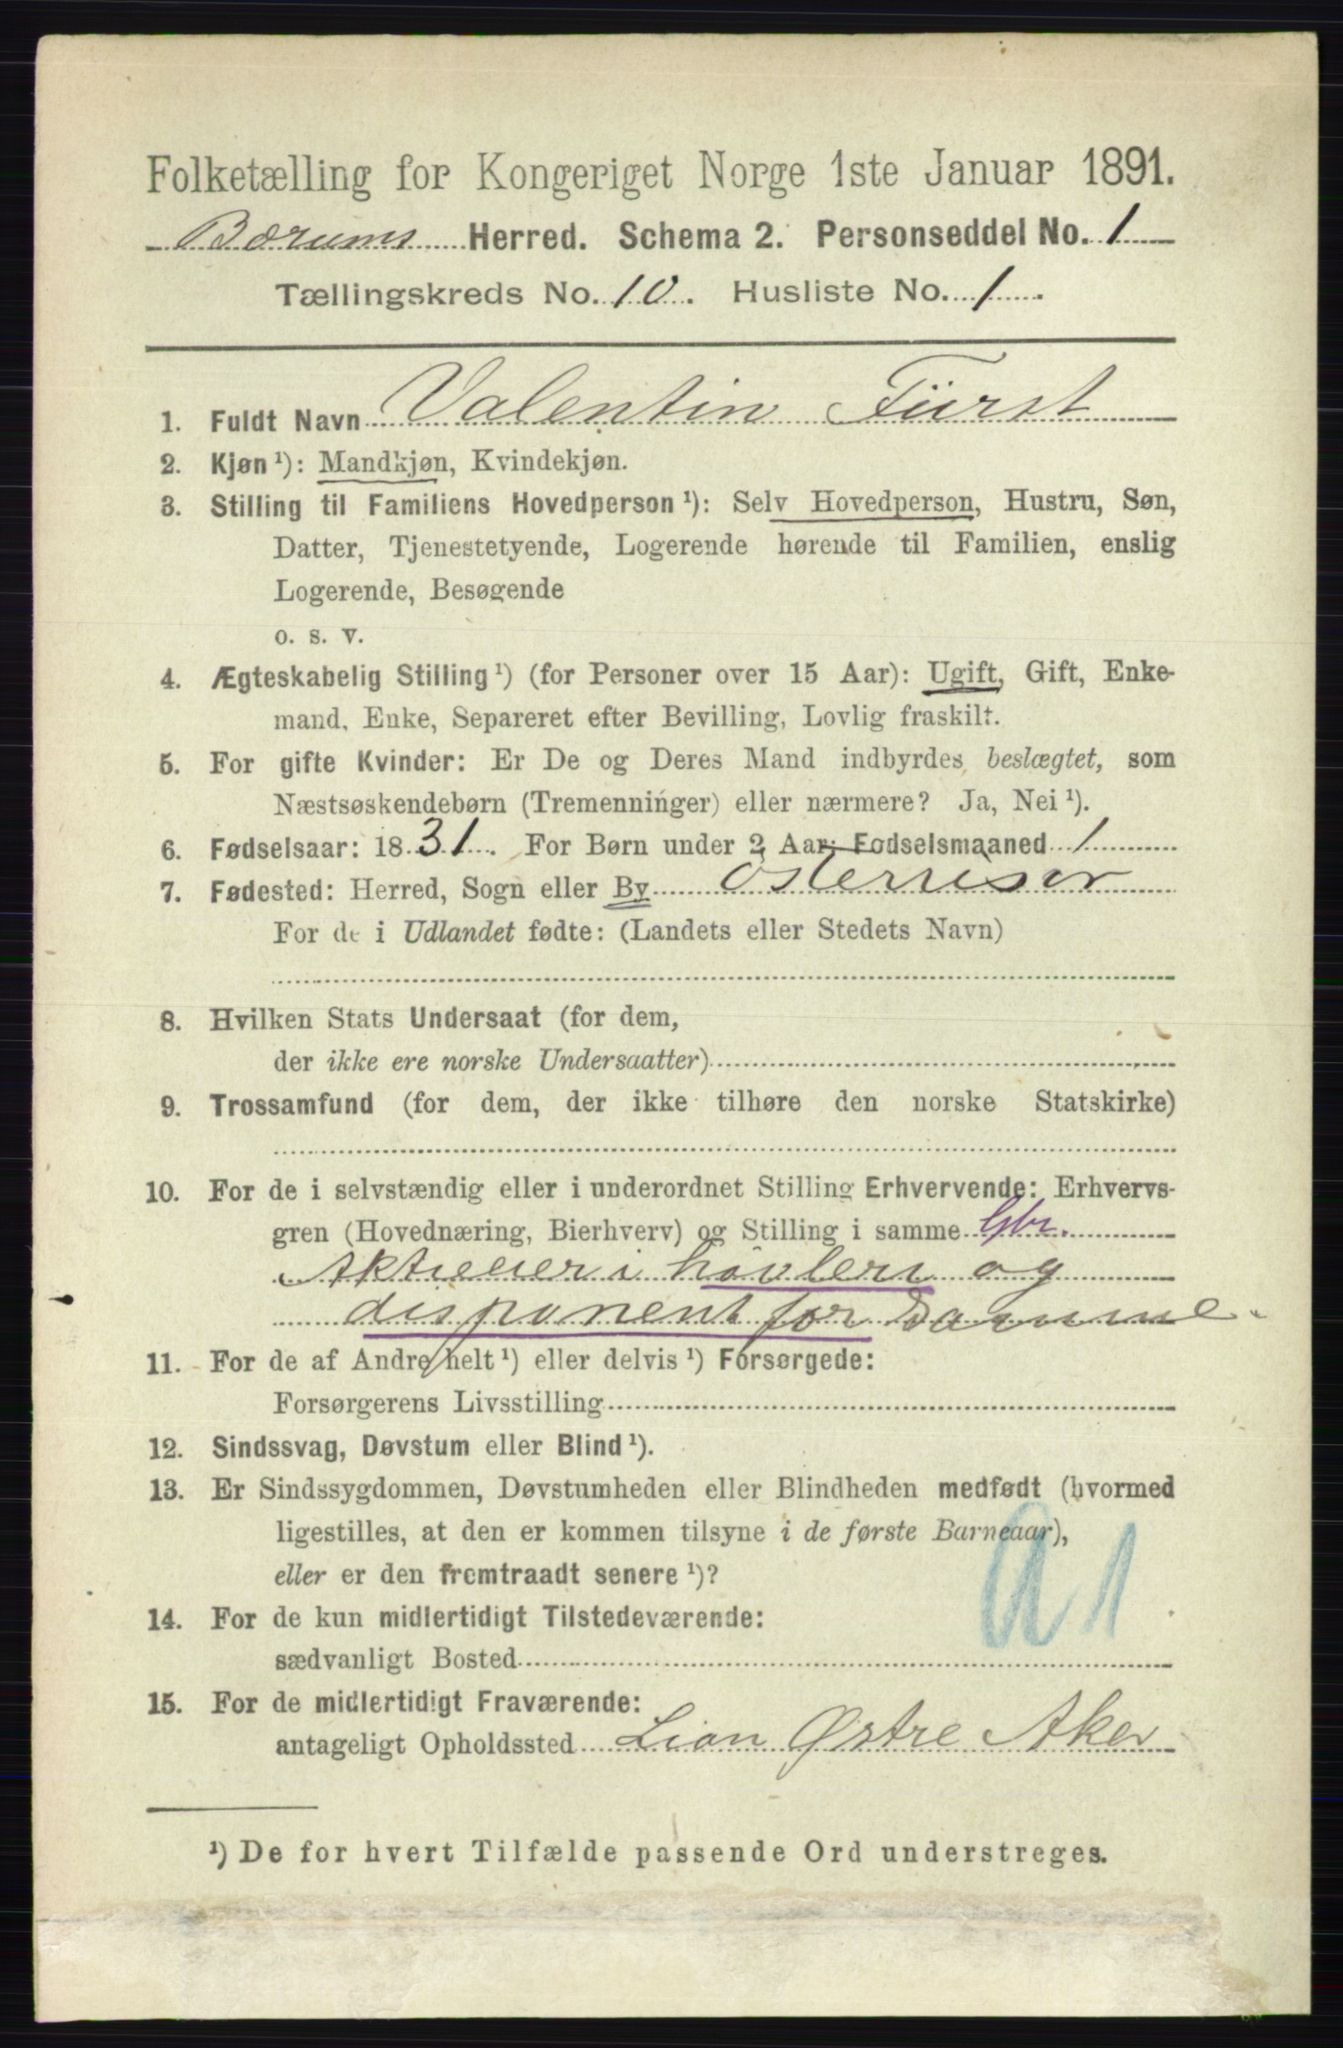 Folketælling for Kongeriget Norge 1ste Januar 1891.
Bærums Herred. Schema 2. Personseddel No. 1
Tællingskreds No. 10. Husliste No. 1.
1. Fuldt Navn Valentin Fürst
2. Kjøn ¹): Mandkjøn, Kvindekjøn.
3. Stilling til Familiens Hovedperson ¹): Selv Hovedperson, Hustru, Søn,
Datter, Tjenestetyende, Logerende hørende til Familien, enslig
Logerende, Besøgende
o. s. v.
4. Ægteskabelig Stilling ¹) (for Personer over 15 Aar): Ugift, Gift, Enke-
mand, Enke, Separeret efter Bevilling, Lovlig fraskilt.
5. For gifte Kvinder: Er De og Deres Mand indbyrdes beslægtet, som
Næstsøskendebørn (Tremenninger) eller nærmere? Ja, Nei ¹).
6. Fødselsaar: 1831. For Børn under 2 Aar: Fødselsmaaned 1
7. Fødested: Herred, Sogn eller By Østerrisør
For de i Udlandet fødte: (Landets eller Stedets Navn)
8. Hvilken Stats Undersaat (for dem,
der ikke ere norske Undersaatter)
9. Trossamfund (for dem, der ikke tilhøre den norske Statskirke)
10. For de i selvstændig eller i underordnet Stilling Erhvervende: Erhvervs-
gren (Hovednæring, Bierhverv) og Stilling i samme Gbr.
Aktieeier i høvleri og
disponent for samme.
11. For de af Andre helt ¹) eller delvis ¹) Forsørgede:
Forsørgerens Livsstilling
12. Sindssvag, Døvstum eller Blind ¹).
13. Er Sindssygdommen, Døvstumheden eller Blindheden medfødt (hvormed
ligestilles, at den er kommen tilsyne i de første Barneaar),
eller er den fremtraadt senere ¹)?
a 1
14. For de kun midlertidigt Tilstedeværende:
sædvanligt Bosted
15. For de midlertidigt Fraværende:
antageligt Opholdssted Lian Østre Aker
¹) De for hvert Tilfælde passende Ord understreges.